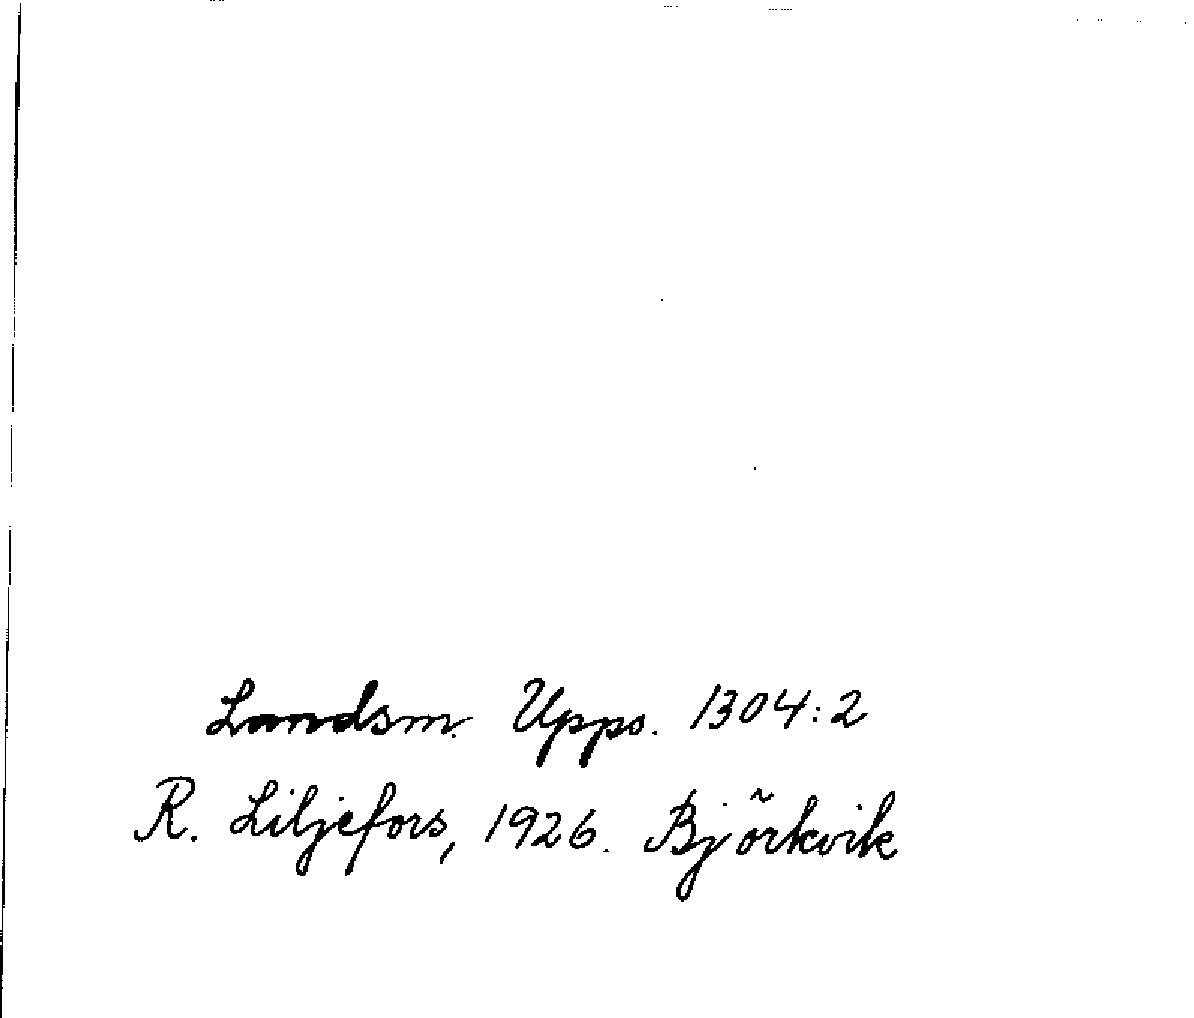 Landsm. Upps. 1304:2
R. Liljefors, 1926. Björkvik